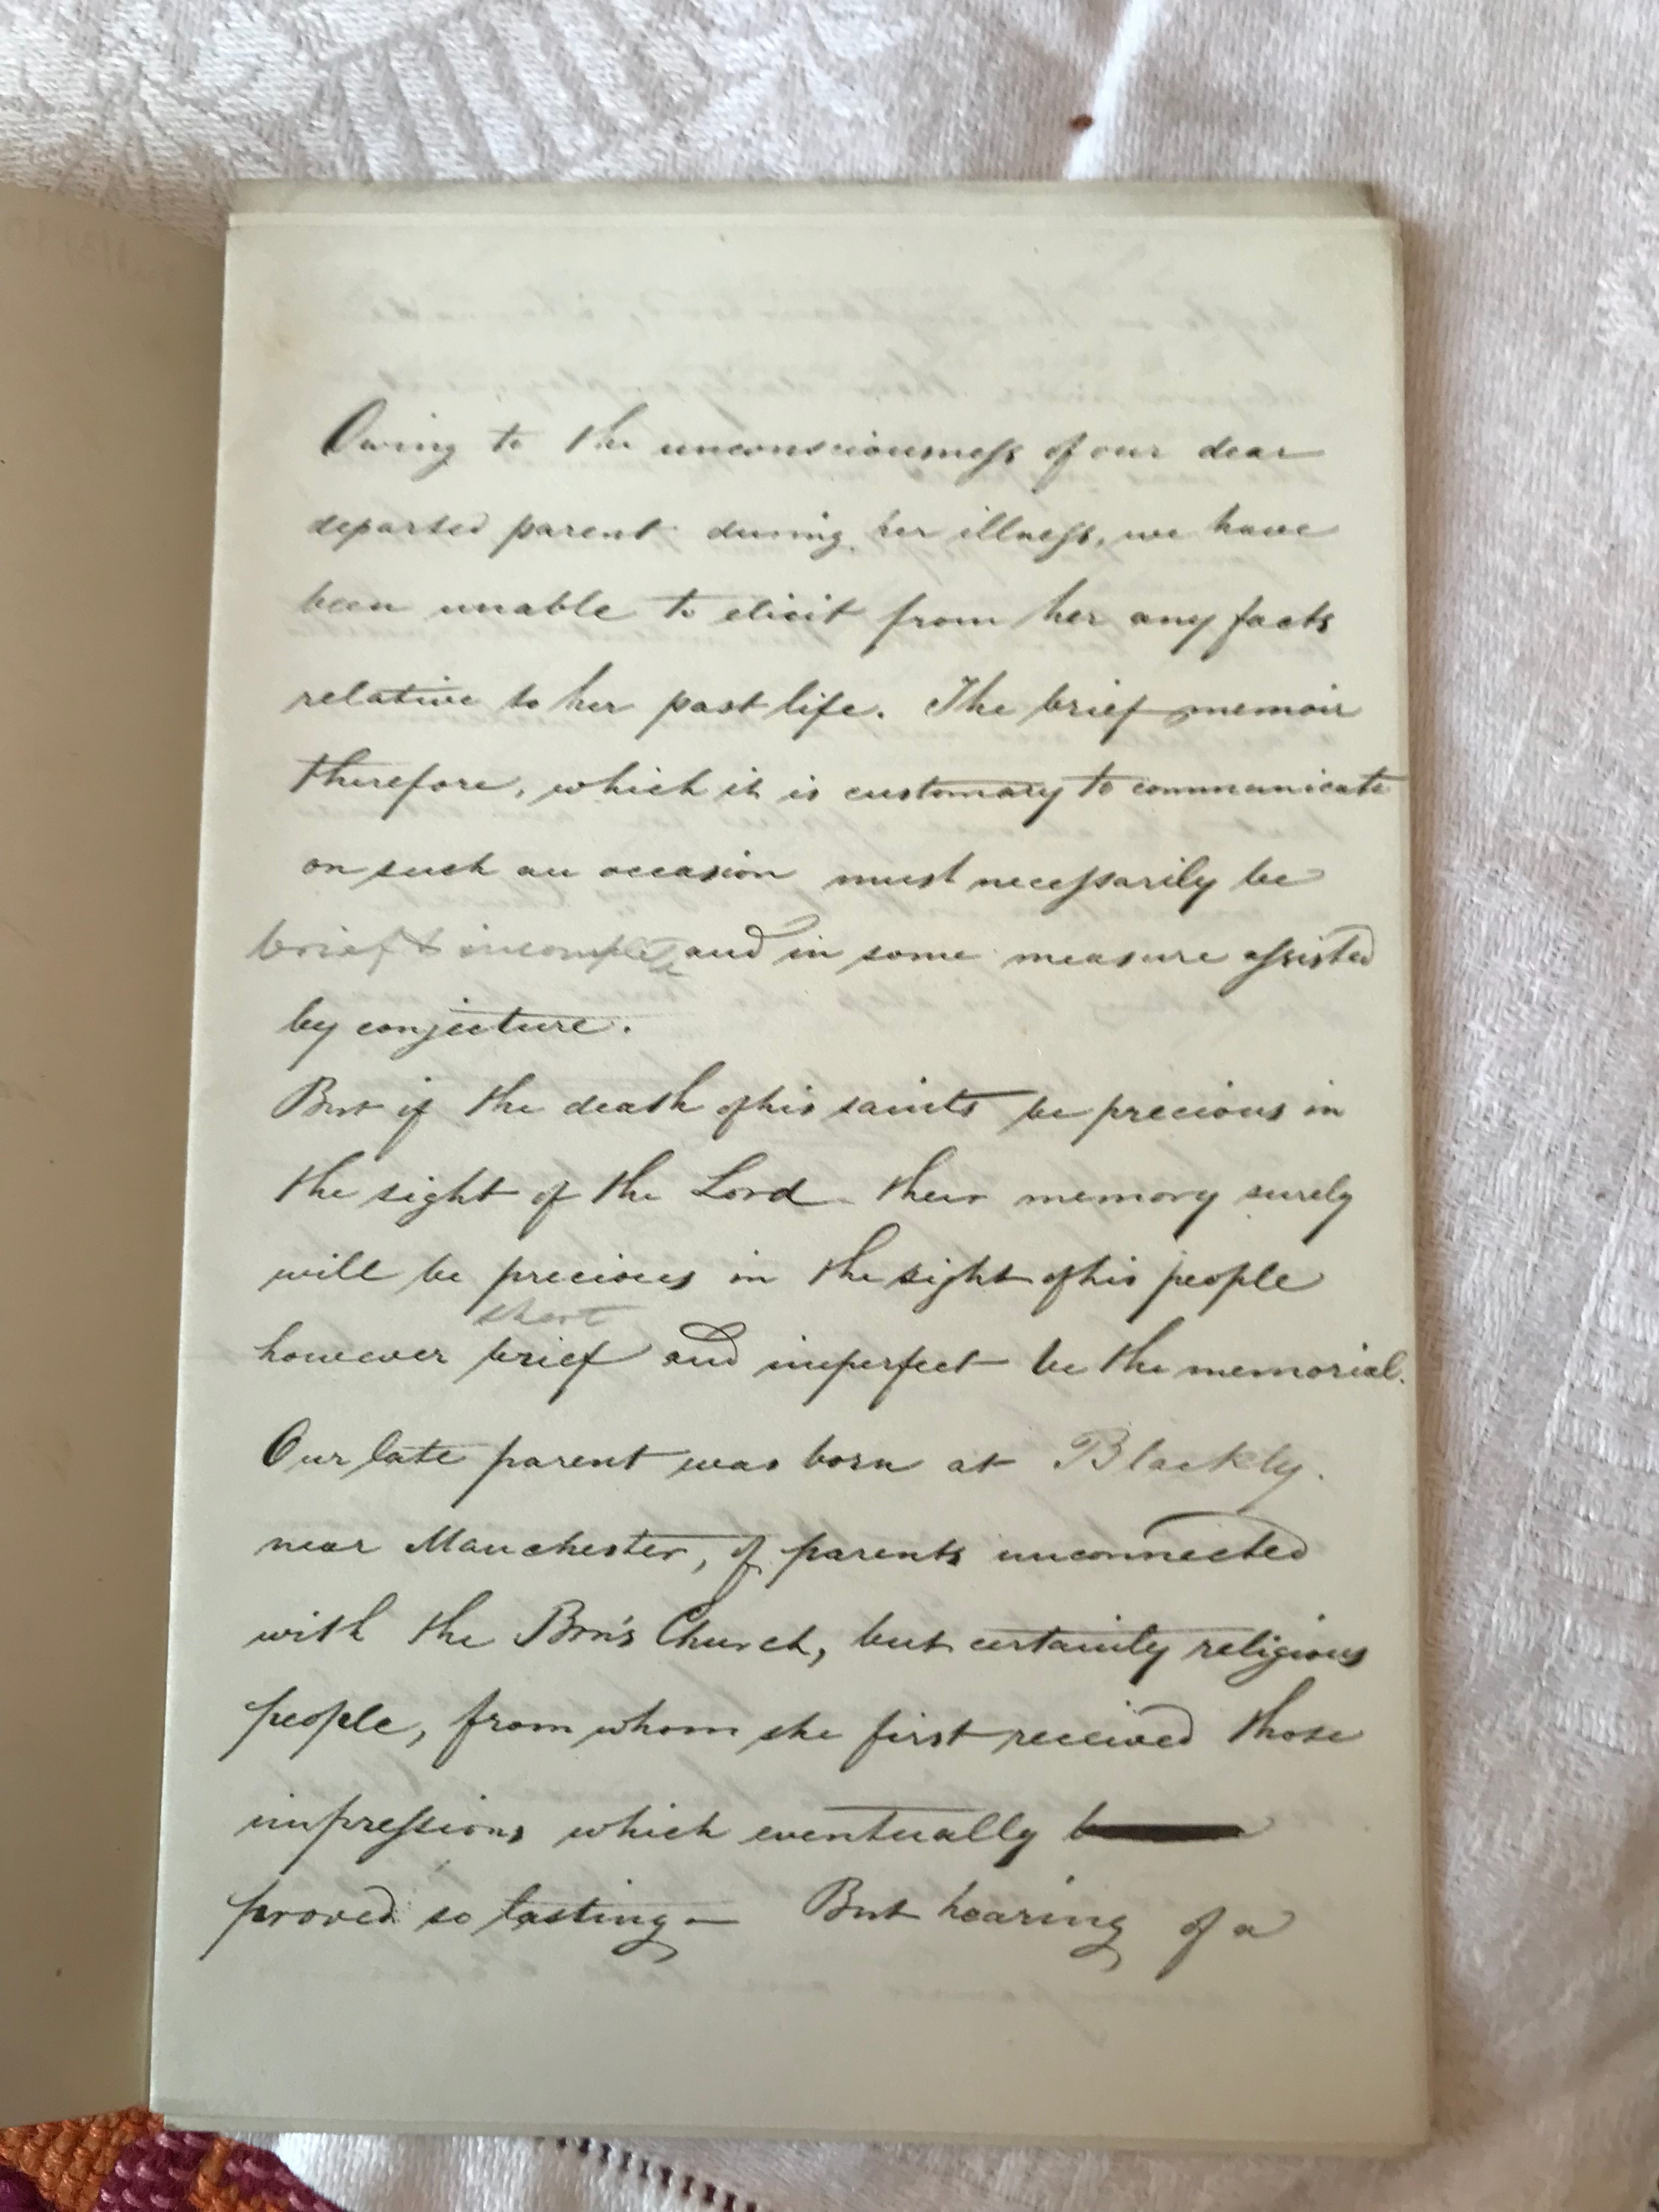 Owing to the unconsciousness of our dear
departed parent during her illness, we have
been unable to elicit from her any facts
relative to her past life. The brief memoir
therefore, which it is customary to communicate
on such an occasion must necessarily be
brief & incomplete and in some measure assisted
by conjecture.
But if the death of his saints be precious in
the sight of the Lord their memory surely
will be precious in the sight of his people
short
however brief and imperfect be the memorial.
Our late parent was born at Blackly.
near Manchester, of parents unconnected
with the Brn's Church, but certainly religious
people, from whom she first received those
impressions which eventually
proved so lasting — But hearing of a